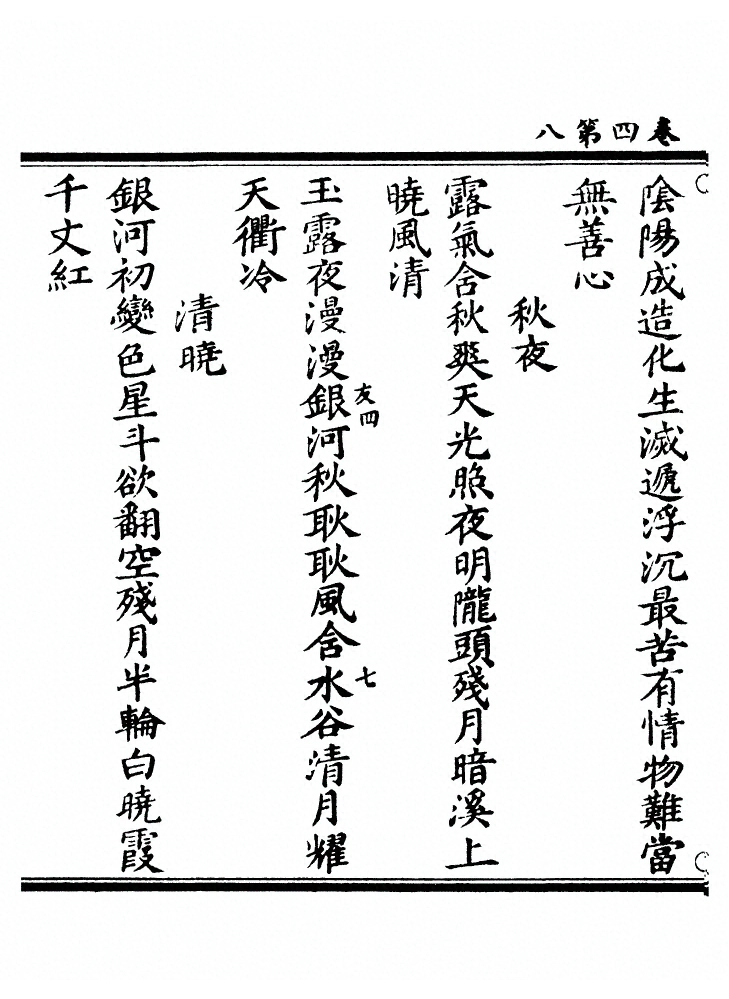 卷四第八
陰陽成造化生滅遞浮沉最苦有情物難當
無善心
秋夜
露氣舍秋爽天光照夜明隴頭殘月暗溪上
曉風清
玉露夜漫漫銀河秋耿耿風舍水谷清月耀
天衢冷
友四
七
清曉
銀河初變色星斗欲翻空殘月半輪白曉霞
千丈紅